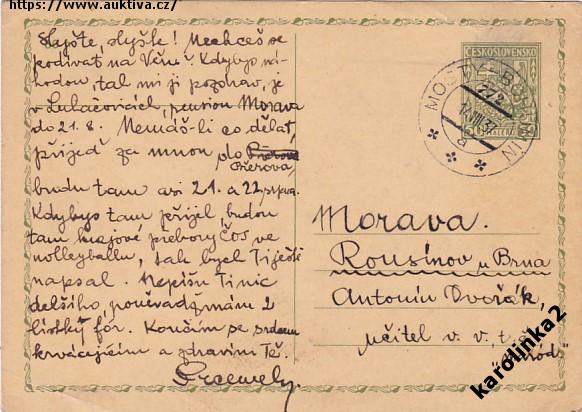 https://www.auktiva.cz/
slyšte! Nechceš se
podívat na Věru? Kdybys ná-
hodou, tak mi ji pozdrav, je
v Luhačovicích, pension Morava
do 21.8. Nemáš-li co dělat,
přijeď za mnou do
Přerova,
budu tam asi 21. a 22. srpna.
Kdybys tam přijel, budou
tam krajové přebory ČOS ve
volleyballu, tak bych Ti ještě
napsal. Nepíšu Ti nic
delšího, poněvadž mám 2
lístky fór. Končím se srdcem
krvácejícím a zdravím Tě.
ČESKOSLOVENSKO
50 HALÉŘŮ
MOST
272
VIII 37
Morava.
Rousínov u Brna
Antonín Dvořák,
učitel v. v.
karolinka2